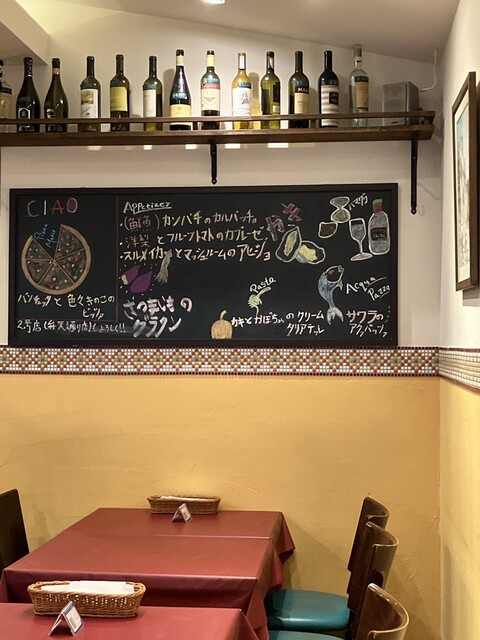 CIAO
Pizza Menu
パンチェッタと色々きのこの
ピッツァ
2号店(弁天通り店)もよろしく!!
Appetizer
・(鮮魚) カンパチのカルパッチョ
・洋梨とフルーツトマトのカプレーゼ
・スルメイカとマッシュルームのアヒージョ
さつまいもの
グラタン
Pasta
カキとかぼちゃのクリーム
タリアテッレ
Acqua
Pazza
サワラの
アクアパッツァ